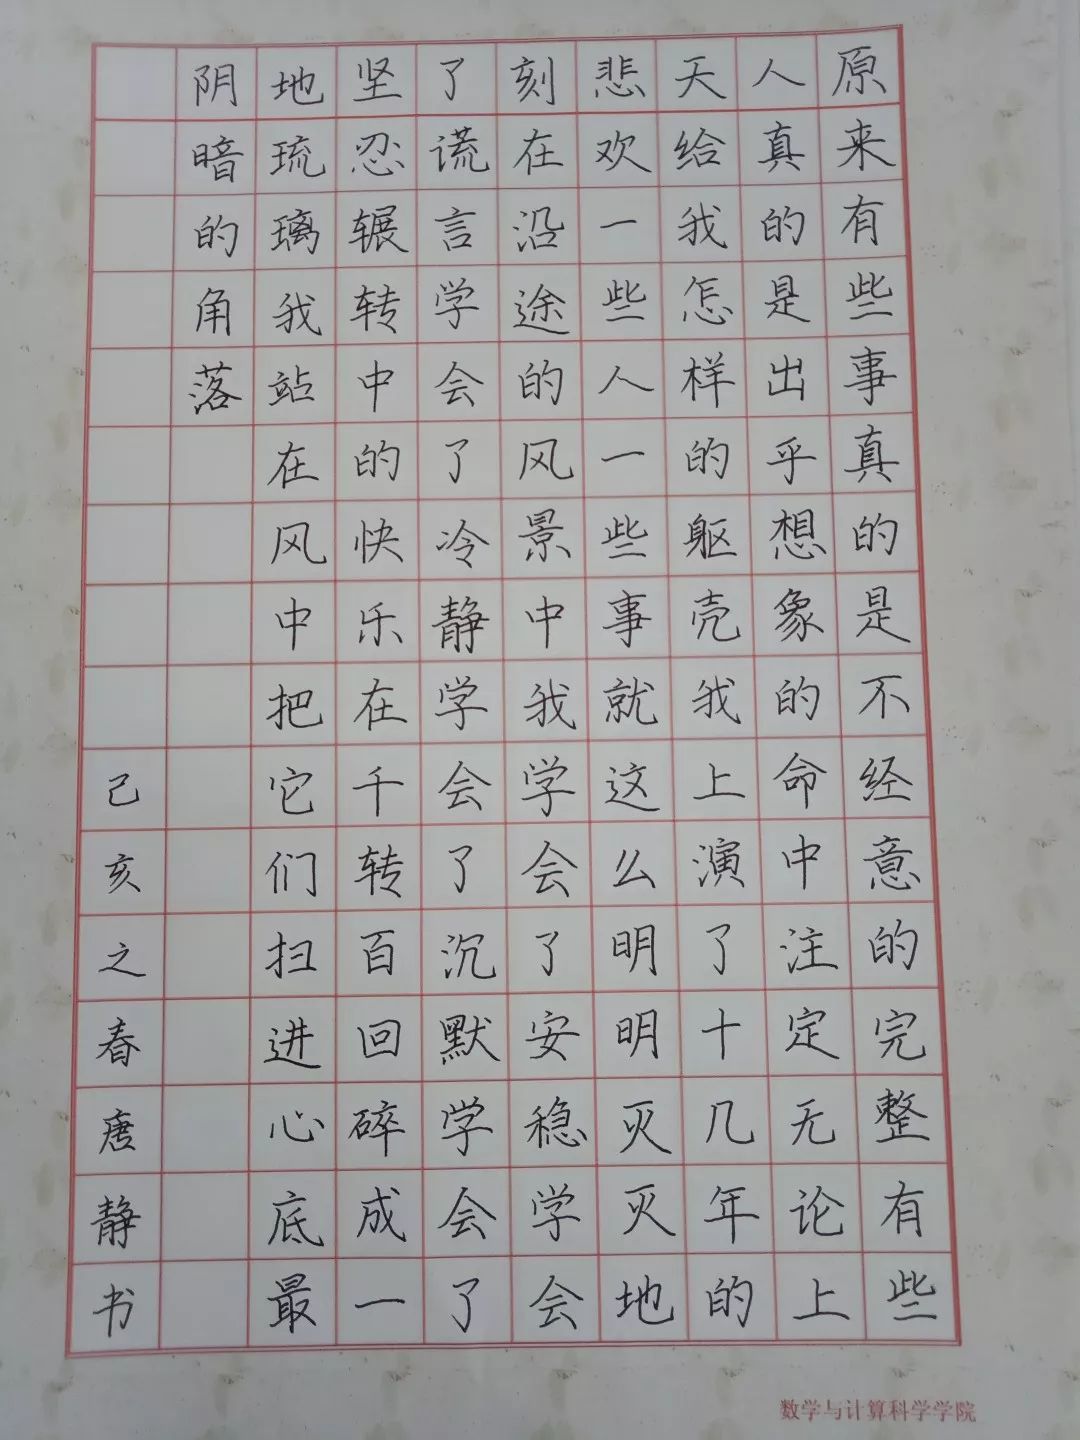 原来有些事真的是不经意的完整有些
人真的是出乎想象的命中注定无论上
天给我怎样的躯壳我上演了十几年的
悲欢一些人一些事就这么明明灭灭地
刻在沿途的风景中我学会了安稳学会
了谎言学会了冷静学会了沉默学会了
坚忍辗转中的快乐在千转百回碎成一
地琉璃我站在风中把它们扫进心底最
阴暗的角落
己亥之春唐静书
数学与计算科学学院